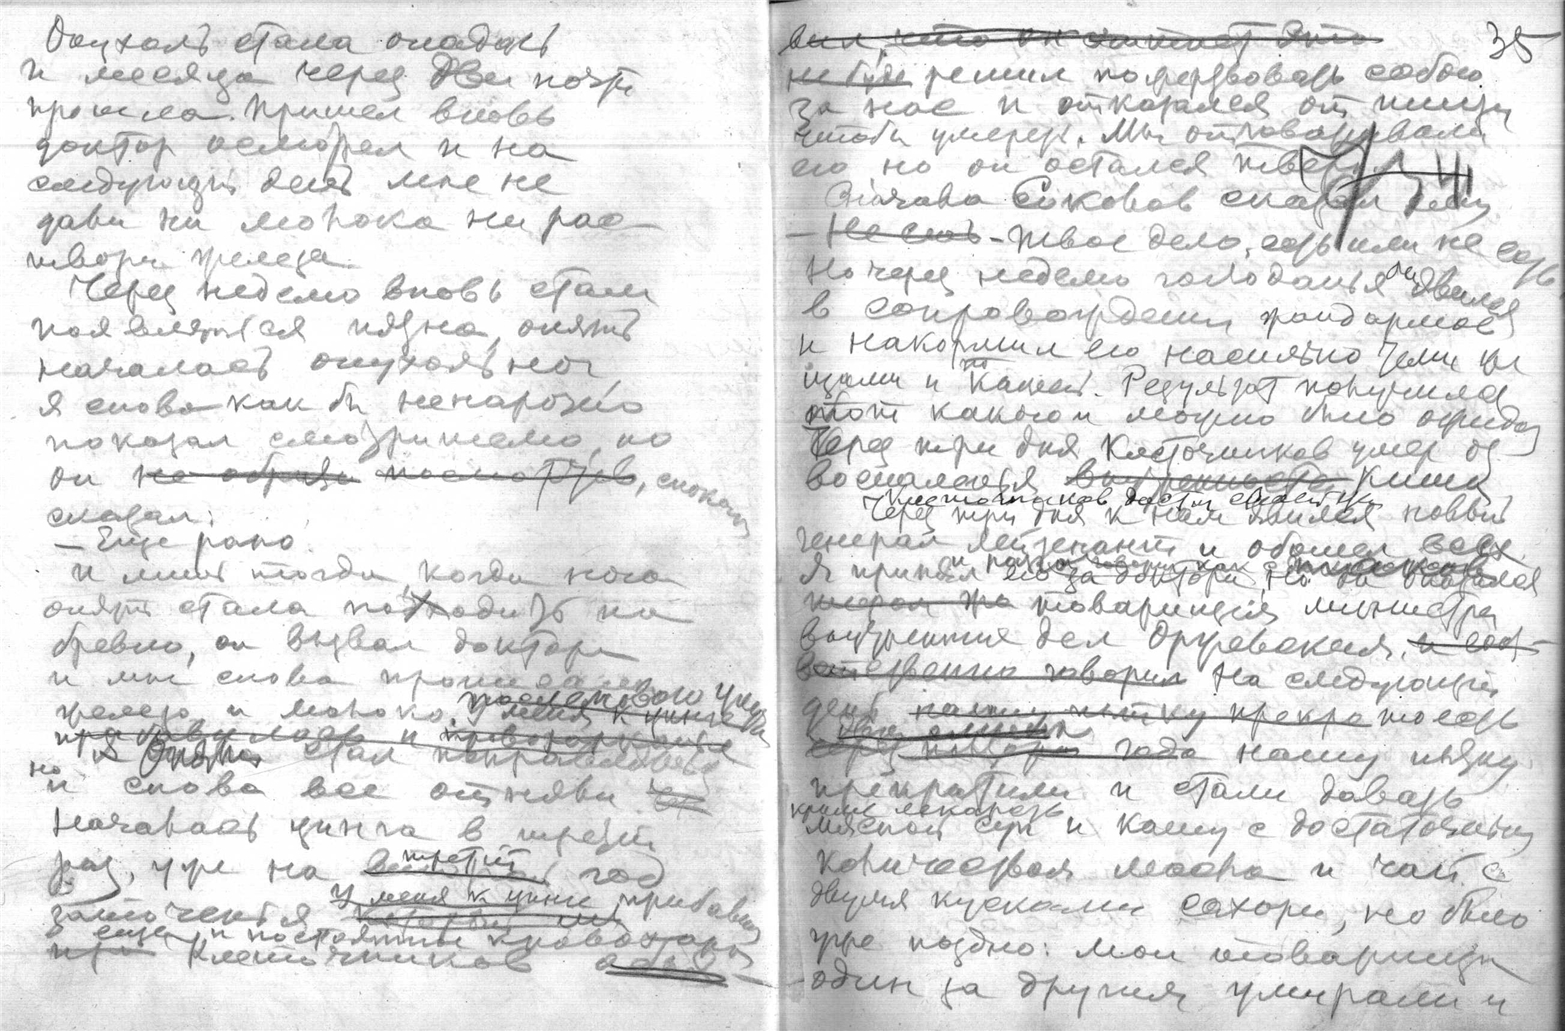 Опухоль стала опадать
и месяца через два почти
прошла. Пришел вновь
доктор осмотрел и на
следующий день мне не
дали ни молока ни рас-
твора железа.
Через неделю вновь стали
появляться пятна, опять
началась опухоль ног,
я снова как бы ненарочно
показал смотрителю, но
он не обратив посмотрев, спокойно
сказал:
— Еще рано.
И лишь тогда, когда нога
опять стала походить на
бревно, он вызвал доктора
и мне снова прописали
железо и молоко.
я опять стал поправляться
но
и снова все отняли
Началась цинга в третий
раз, уже на третий год
заточения У меня к цинге прибавились
еще и постоянные кровохарк
Клеточников объя-
35
вил, что он
не был решил пожертвовать собою
за нас и отказался от пищи
чтобы умереть. Мы отговаривали
его но он остался тверд.
Вначале Соколов сказал ему
— Не ешь - твое дело, есть или не есть
Но через неделю голоданья он явился
в сопровождении жандармов
и накормил его насильно теми же
щами и кашей. Результат получился
тот какого и можно было ожидать
Через три дня Клеточников умер от
воспаленья внутренностей кишок
Через три дня к нам явился новый
генерал лейтенант и обошел всех.
Я принял его за доктора, но он оказался
товарищем министра
внутренних дел Оржевским, и соот-
ветственно говорил На следующий
день нашу пытку прекра
года нашу пытку
прекратили и стали давать
кроме лекарств
мясной суп и кашу с достаточным
количеством масла и чай с
двумя кусками сахара, но было
уже поздно: мои товарищи
один за другим умирали и